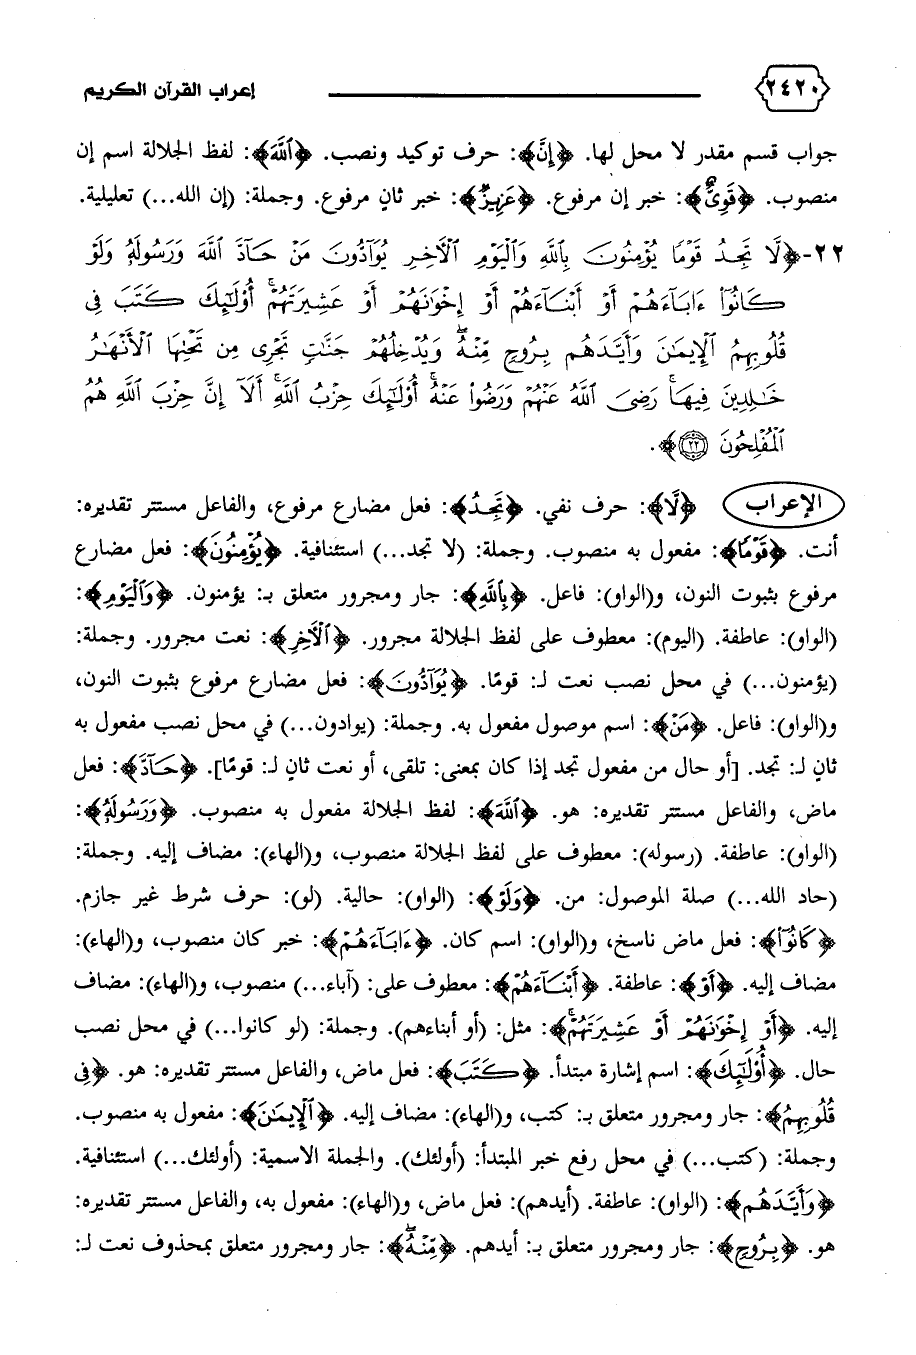 ٢٤٢٠ إعراب القرآن الكريم
جواب قسم مقدر لا محل لها. ﴿إِنَّ﴾: حرف توكيد ونصب. ﴿ٱللَّهَ﴾: لفظ الجلالة اسم إن
منصوب. ﴿قَوِيٌّ﴾: خبر إن مرفوع. ﴿عَزِيزٌ﴾: خبر ثانٍ مرفوع. وجملة: (إن الله...) تعليلية.
٢٢-﴿لَّا تَجِدُ قَوْمًا يُؤْمِنُونَ بِٱللَّهِ وَٱلْيَوْمِ ٱلْأَخِرِ يُوَآدُّونَ مَنْ حَآدَّ ٱللَّهَ وَرَسُولَهُۥ وَلَوْ
كَانُوٓا۟ ءَابَآءَهُمْ أَوْ أَبْنَآءَهُمْ أَوْ إِخْوَٰنَهُمْ أَوْ عَشِيرَتَهُمْ ۚ أُو۟لَـٰٓئِكَ كَتَبَ فِى
قُلُوبِهِمُ ٱلْإِيمَـٰنَ وَأَيَّدَهُم بِرُوحٍ مِّنْهُ ۖ وَيُدْخِلُهُمْ جَنَّـٰتٍ تَجْرِى مِن تَحْتِهَا ٱلْأَنْهَـٰرُ
خَـٰلِدِينَ فِيهَا ۚ رَضِىَ ٱللَّهُ عَنْهُمْ وَرَضُوا۟ عَنْهُ ۚ أُو۟لَـٰٓئِكَ حِزْبُ ٱللَّهِ ۚ أَلَآ إِنَّ حِزْبَ ٱللَّهِ هُمُ
ٱلْمُفْلِحُونَ ٢٢﴾.
الإعراب ﴿لَّا﴾: حرف نفي. ﴿تَجِدُ﴾: فعل مضارع مرفوع، والفاعل مستتر تقديره:
أنت. ﴿قَوْمًا﴾: مفعول به منصوب. وجملة: (لا تجد...) استئنافية. ﴿يُؤْمِنُونَ﴾: فعل مضارع
مرفوع بثبوت النون، و(الواو): فاعل. ﴿بِٱللَّهِ﴾: جار ومجرور متعلق بـ: يؤمنون. ﴿وَٱلْيَوْمِ﴾:
(الواو): عاطفة. (اليوم): معطوف على لفظ الجلالة مجرور. ﴿ٱلْأَخِرِ﴾: نعت مجرور. وجملة:
(يؤمنون...) في محل نصب نعت لـ: قومًا. ﴿يُوَآدُّونَ﴾: فعل مضارع مرفوع بثبوت النون،
و(الواو): فاعل. ﴿مَنْ﴾: اسم موصول مفعول به. وجملة: (يوادون...) في محل نصب مفعول به
ثانٍ لـ: تجد. [أو حال من مفعول تجد إذا كان بمعنى: تلقى، أو نعت ثانٍ لـ: قومًا]. ﴿حَآدَّ﴾: فعل
ماض، والفاعل مستتر تقديره: هو. ﴿ٱللَّهَ﴾: لفظ الجلالة مفعول به منصوب. ﴿وَرَسُولَهُۥ﴾:
(الواو): عاطفة. (رسوله): معطوف على لفظ الجلالة منصوب، و(الهاء): مضاف إليه. وجملة:
(حاد الله...) صلة الموصول: من. ﴿وَلَوْ﴾: (الواو): حالية. (لو): حرف شرط غير جازم.
﴿كَانُوٓا۟﴾: فعل ماض ناسخ، و(الواو): اسم كان. ﴿ءَابَآءَهُمْ﴾: خبر كان منصوب، و(الهاء):
مضاف إليه. ﴿أَوْ﴾: عاطفة. ﴿أَبْنَآءَهُمْ﴾: معطوف على: (آباء...) منصوب، و(الهاء): مضاف
إليه. ﴿أَوْ إِخْوَٰنَهُمْ أَوْ عَشِيرَتَهُمْ ۚ﴾: مثل: (أو أبناءهم). وجملة: (لو كانوا...) في محل نصب
حال. ﴿أُو۟لَـٰٓئِكَ﴾: اسم إشارة مبتدأ. ﴿كَتَبَ﴾: فعل ماض، والفاعل مستتر تقديره: هو. ﴿فِى
قُلُوبِهِمُ﴾: جار ومجرور متعلق بـ: كتب، و(الهاء): مضاف إليه. ﴿ٱلْإِيمَـٰنَ﴾: مفعول به منصوب.
وجملة: (كتب...) في محل رفع خبر المبتدأ: (أولئك). والجملة الاسمية: (أولئك...) استئنافية.
﴿وَأَيَّدَهُم﴾: (الواو): عاطفة. (أيدهم): فعل ماض، و(الهاء): مفعول به، والفاعل مستتر تقديره:
هو. ﴿بِرُوحٍ﴾: جار ومجرور متعلق بـ: أيدهم. ﴿مِّنْهُ ۖ﴾: جار ومجرور متعلق بمحذوف نعت لـ: